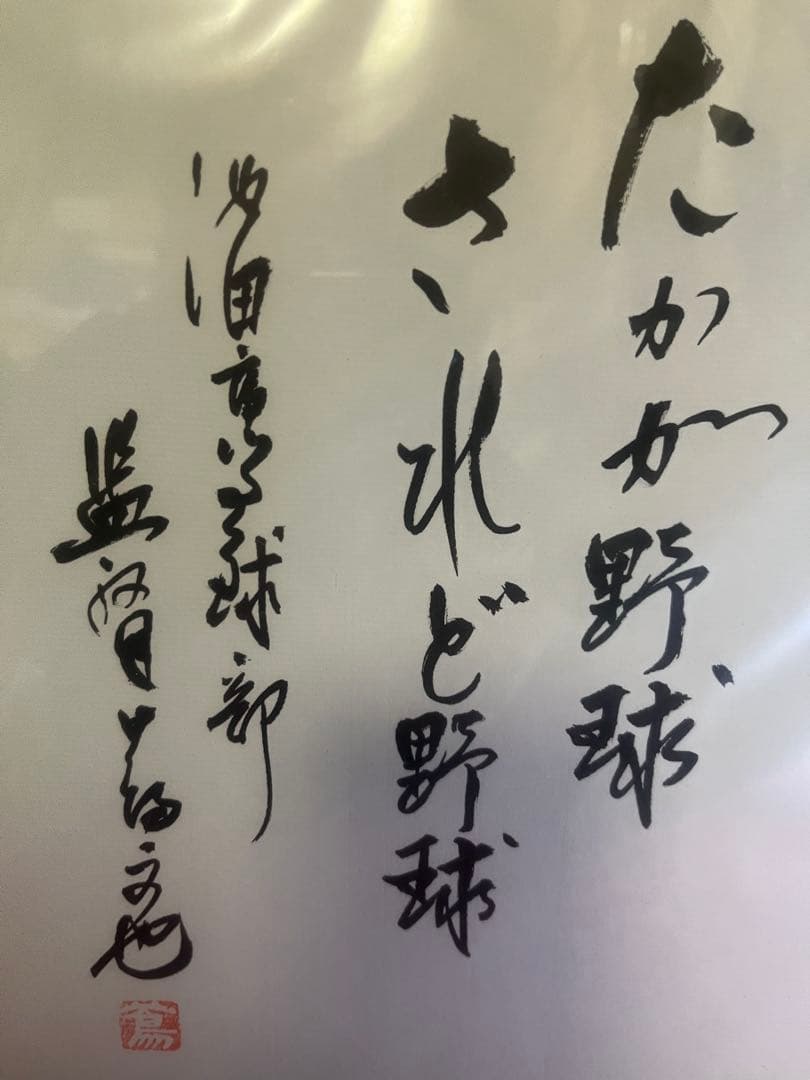 たかが野球
されど野球
池田高等学校野球部
監督 蔦文也
蔦